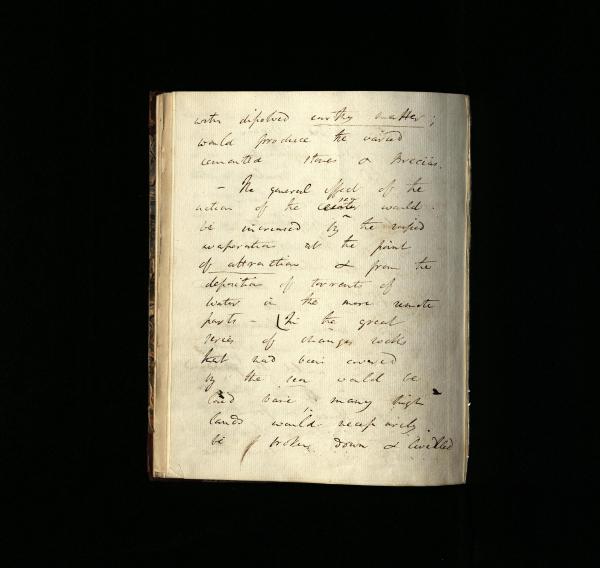 with dissolved earthy matter;
would produce the varied
cemented stones & Breccias.
— The general effect of the
action of the sea would
be increased by the rapid
evaporation at the point
of attraction & from the
deposition of torrents of
water in the more remote
parts — In the great
series of changes rocks
that had been covered
by the sea would be
laid bare, many high
lands would necessarily
be broken down & levelled